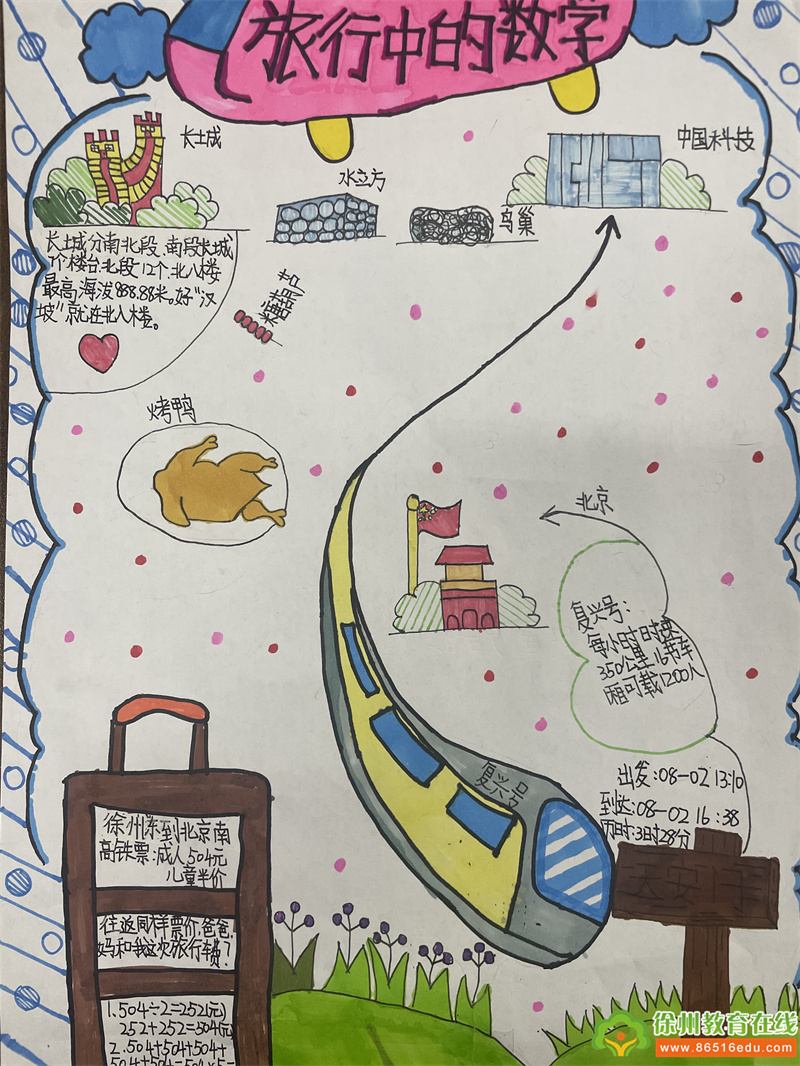 旅行中的数学
长土成
水立方
鸟巢
中国科技
长土城分南北段、南段长城
7个楼台、北段12个、北八楼
最高海泼888.88米。好"汉
坡"就在北八楼。
烤鸭
北京
复兴号：
每小时时速
350公里 16节车
厢可载1200人
复兴号
出发:08-02 13:10
到达:08-02 16:38
历时:3时28分
天安
徐州东到北京南
高铁票:成人504元
儿童半价
往返同样票价,爸爸,
妈和我这次旅行车费？
1.504÷2=252(元)
252+252=504(元)
2.504+504+504+
徐州教育在线
www.86516edu.com